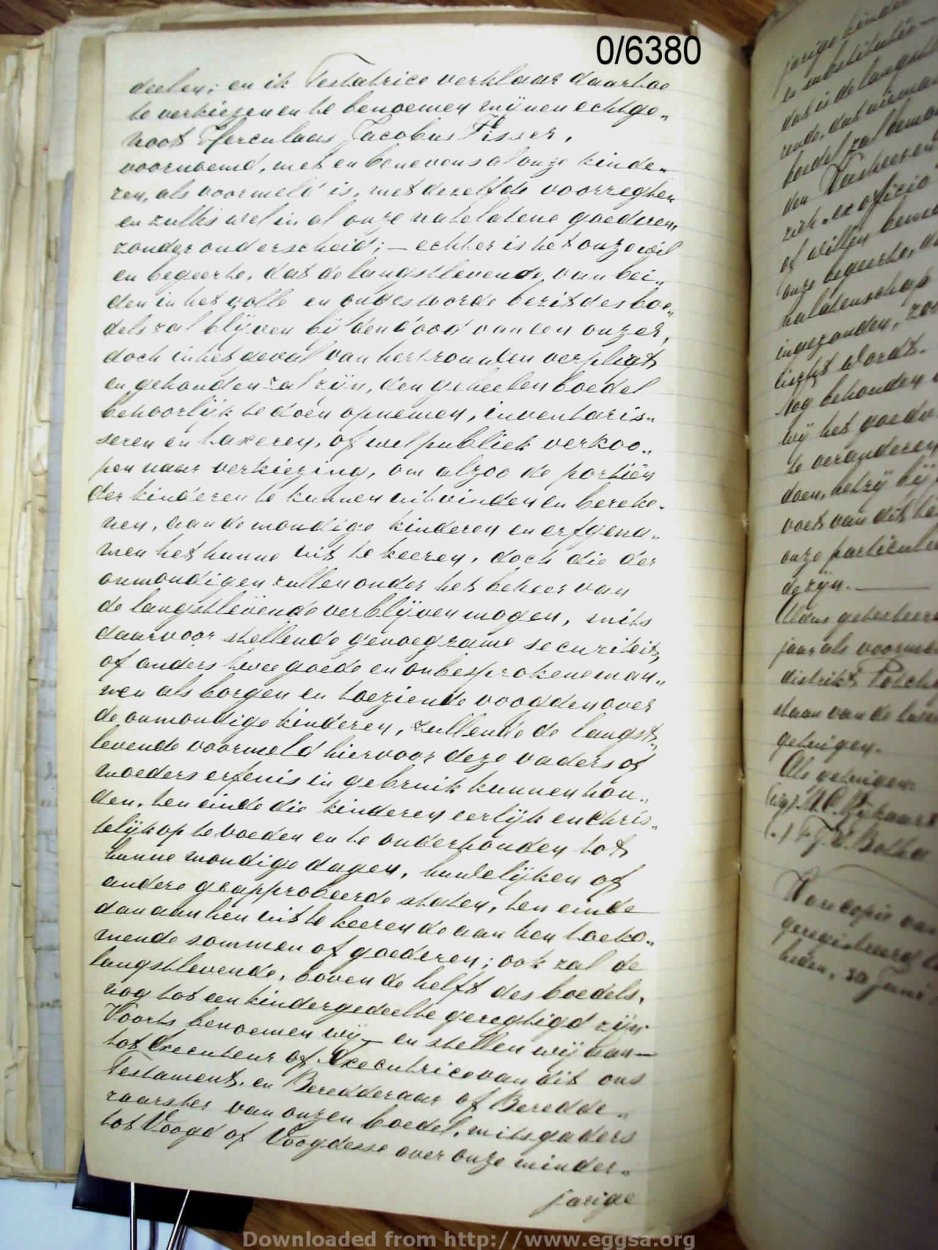 0/6380
deelen; en ik Testatrice verklaar daartoe
te verkiezen en te benoemen mijnen echtge„
noot Herculaas Jacobus Visser,
voornoemd, met en benevens al onze kinde„
ren, als voormeld is, met dezelfde voorregten
en zulks wel in al onze natelatene goederen
zonder onderscheid; — echter is het onze wil
en begeerte, dat de langstlevende, van bei„
den in het volle en ongestoorde bezit des boe„
dels zal blijven bij den dood van een onzer,
doch in het geval van hertrouwen verpligt
en gehouden zal zijn, den geheelen boedel
behoorlijk te doen opnemen, inventaris„
seren en taxeren, of wel publiek verkoo„
pen naar verkiezing, om alzoo de portiën
der kinderen te kunnen uitvinden en bereke„
nen, aan de mondige kinderen en erfgena„
men het hunne uit te keeren, doch die der
onmondigen zullen onder het beheer van
de langstlevende verblijven mogen, mits
daarvoor stellende genoegzame securiteit,
of anders twee goede en onbesprokene man„
nen als borgen en toeziende voogden over
de onmondige kinderen, zullende de langst„
levende voormeld hiervoor deze vaders of
moeders erfenis in gebruik kunnen hou„
den, ten einde die kinderen eerlijk en chris„
telijk op te voeden en te onderhouden tot
hunne mondige dagen, huwelijken of
andere geapprobeerde staten, ten einde
dan aan hen uit te keeren de aan hen toeko„
mende sommen of goederen; ook zal de
langstlevende, boven de helft des boedels,
nog tot een kindergedeelte geregtigd zijn.
Voorts benoemen wij en stellen wij aan—
tot Executeur of Executrice van dit ons
Testament, en Beredderaar of Beredde„
raarster van onzen boedel, mitsgaders
tot Voogd of Voogdesse over onze minder„
jarige
jarige kinderen
en substitutie
dat is de langst
zende, dat niemand
boedel zal
den Weesheeren
zich ex officio
of willen
onze begeerte, d
nalatenschap
ingezonden,
ligt wordt.
Nog behouden
wij het goed
te veranderen
doen, hetzij bij
voet van dit te
onze particulie
de zijn.
Aldus getesteerd
jaar als voorme
distrikt Potche
staan van de
getuigen.
Als getuigen
Voor copie
geregistreerd
heden, 30 Juni
Downloaded from http://www.eggsa.org